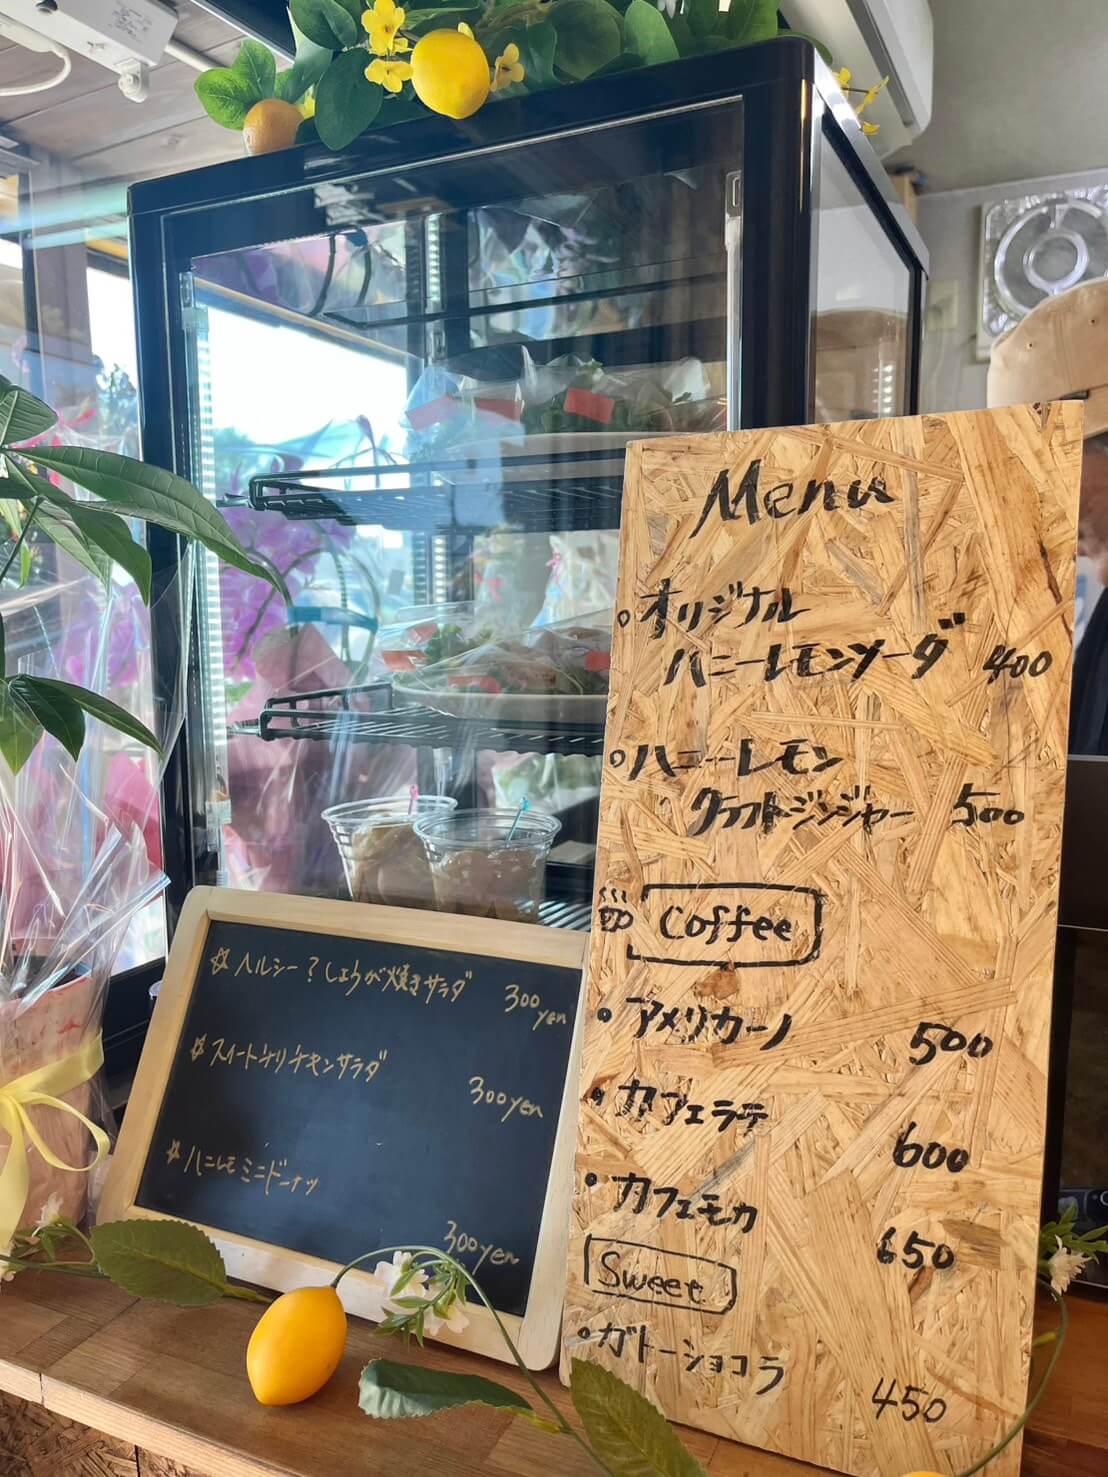 Menu
オリジナル
ハニーレモンソーダ 400
ハニーレモン
クラフトジンジャー 500
Coffee
アメリカーノ 500
カフェラテ 600
カフェモカ 650
Sweet
ガトーショコラ 450
☆ ヘルシー？しょうが焼きサラダ 300yen
☆ スイートチリチキンサラダ 300yen
☆ ハニレモミニドーナツ 300yen